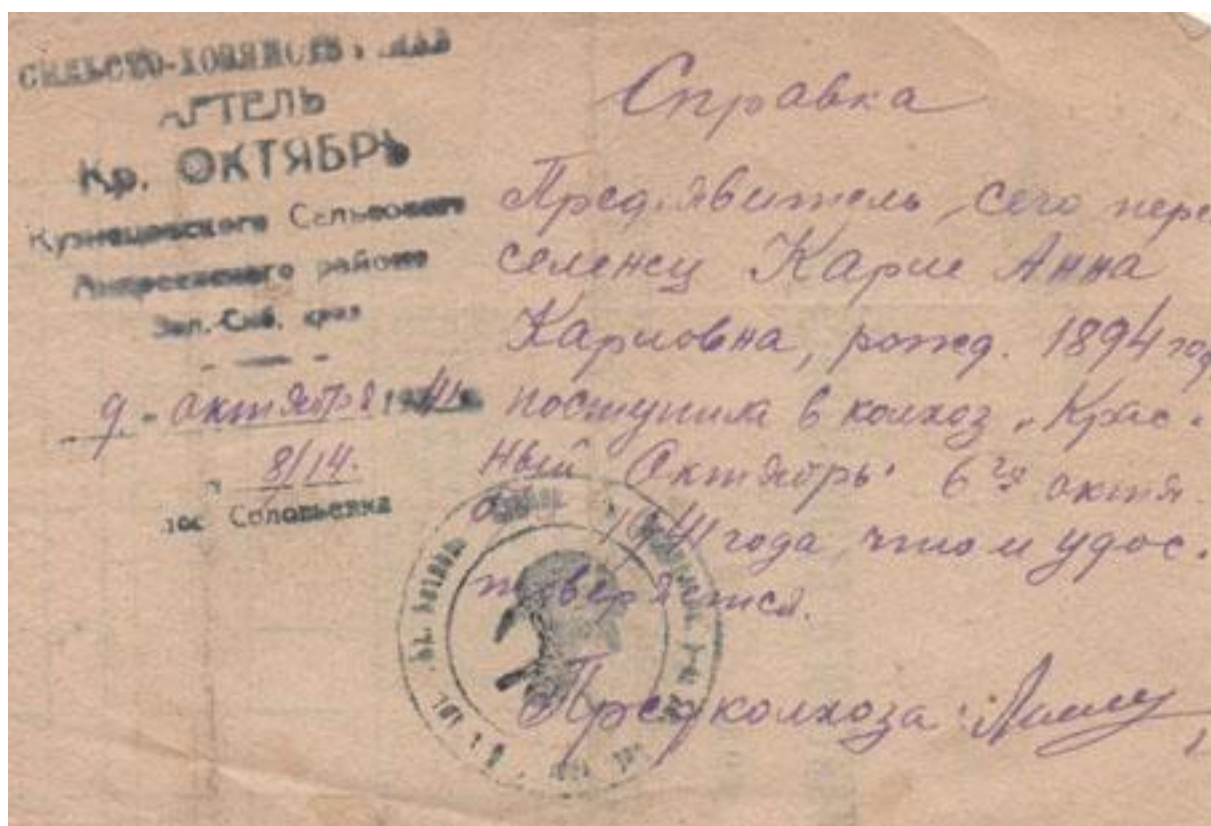 СЕЛЬСКО-ХОЗЯЙСТВЕННАЯ
АРТЕЛЬ
Кр. ОКТЯБРЬ
Кузнецовского Сельсовета
Андреевского района
Зап.-Сиб. края
9 - октября 1941
8/14.
пос Соловьевка
Справка
Пред'явитель сего пере
селенец Карле Анна
Карловна, рожд. 1894 год
поступила в колхоз „Крас-
ный Октябрь" 6го октя-
бря 1941 года, что и удос-
товеряется.
Пред колхоза: